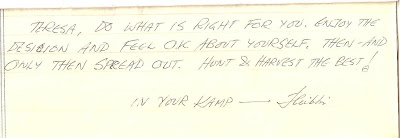 TERESA, DO WHAT IS RIGHT FOR YOU. ENJOY THE
DESISION AND FEEL OK ABOUT YOURSELF, THEN - AND
ONLY THEN SPREAD OUT. HUNT & HARVEST THE BEST!
IN YOUR KAMP —